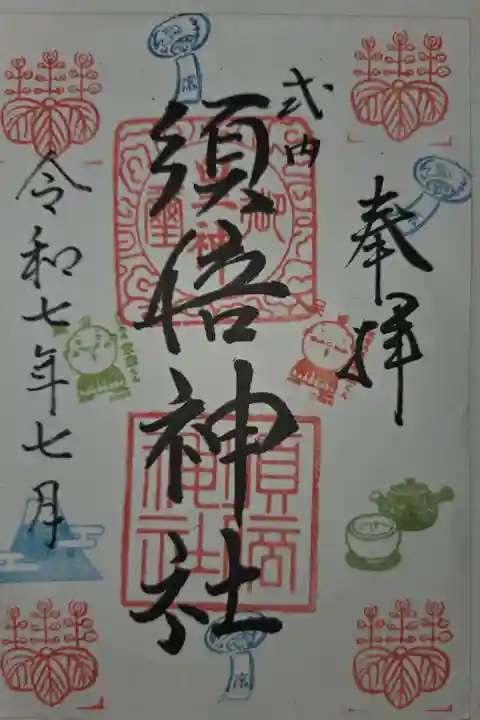 奉拝
式内
須倍神社
令和七年七月
須倍
神社
涼
涼